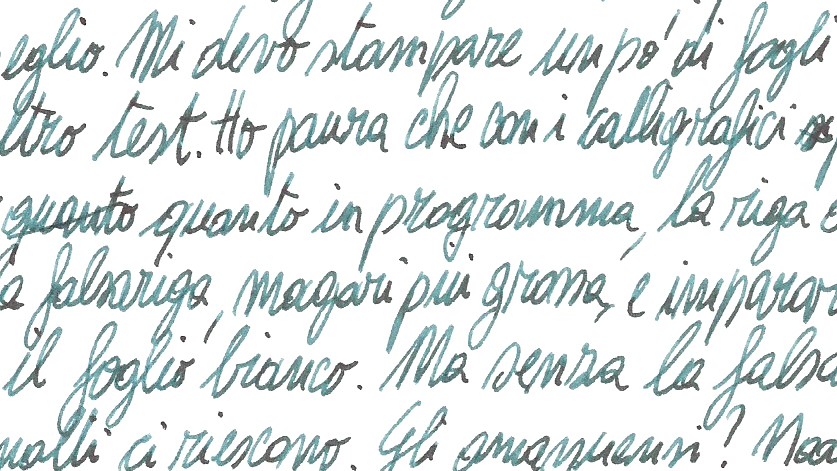 eglio. Mi devo stampare un po' di fogli
ltro test. Ho paura che con i calligrafici
quanto quanto in programma, la riga
la falsariga, magari più grossa, e imparar
il foglio bianco. Ma senza la falsa
molti ci riescono. Gli amanuensi!